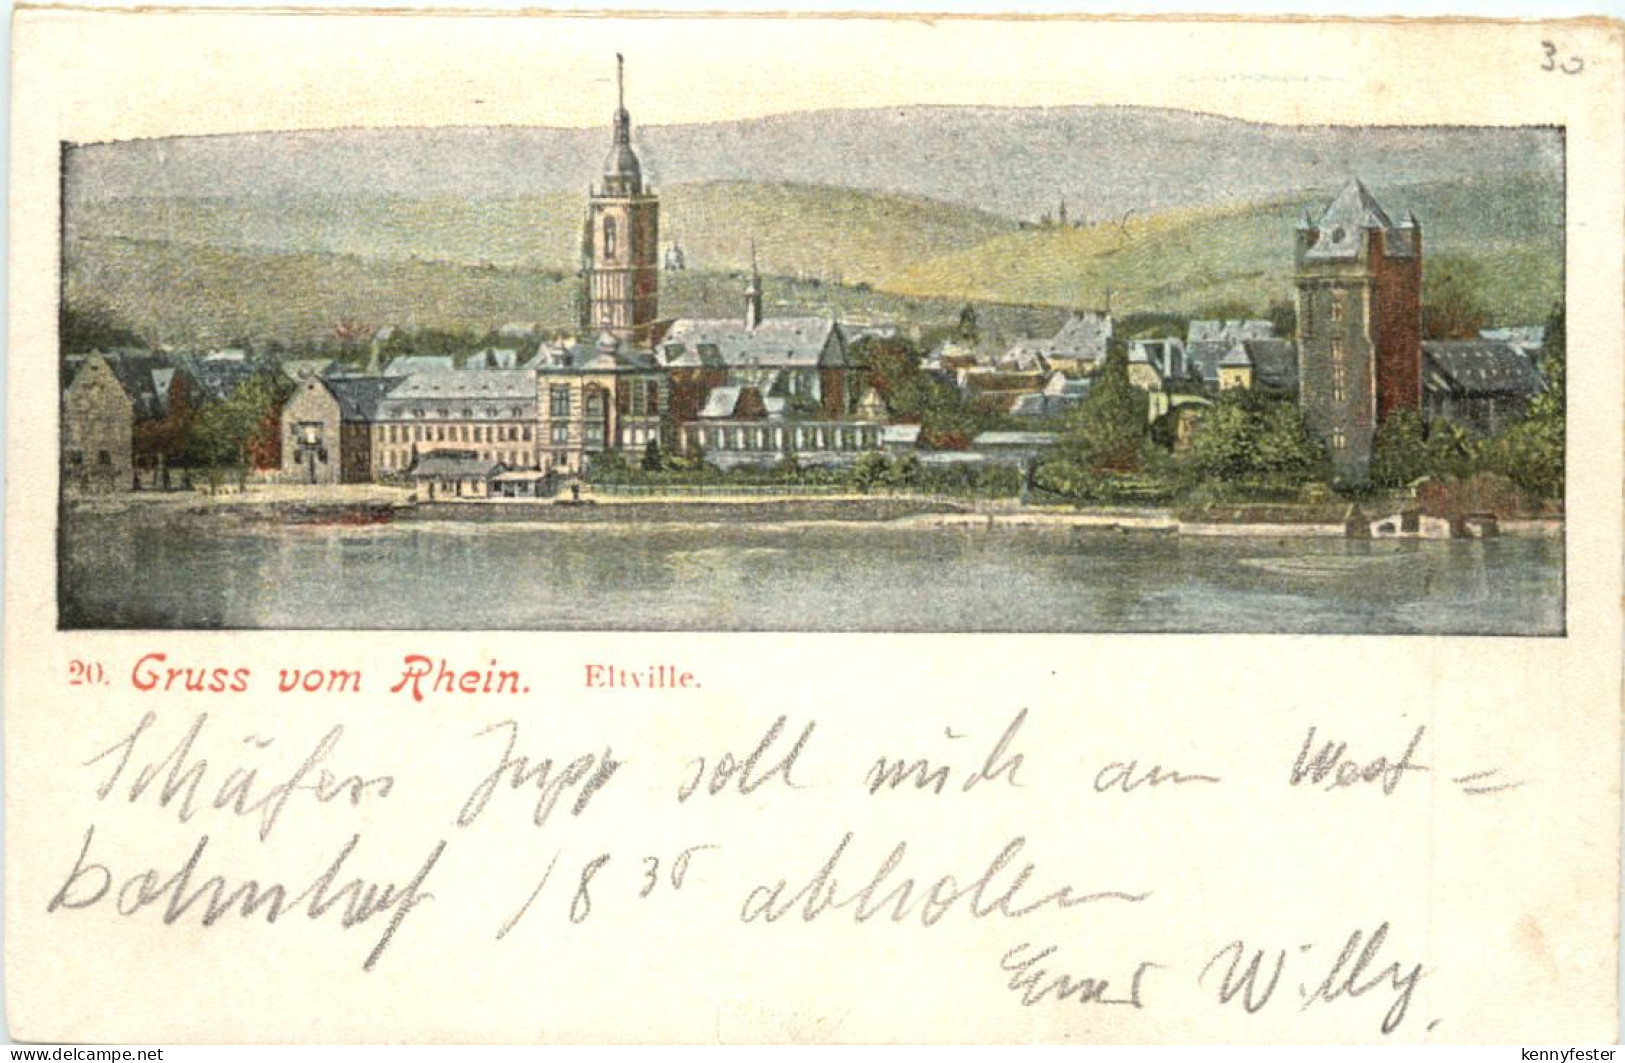 30
20. Gruss vom Rhein. Eltville.
Schäfers Jupp soll mich am West=
bahnhof 18 36 abholen
Euer Willy.
www.delcampe.net
kennyfester